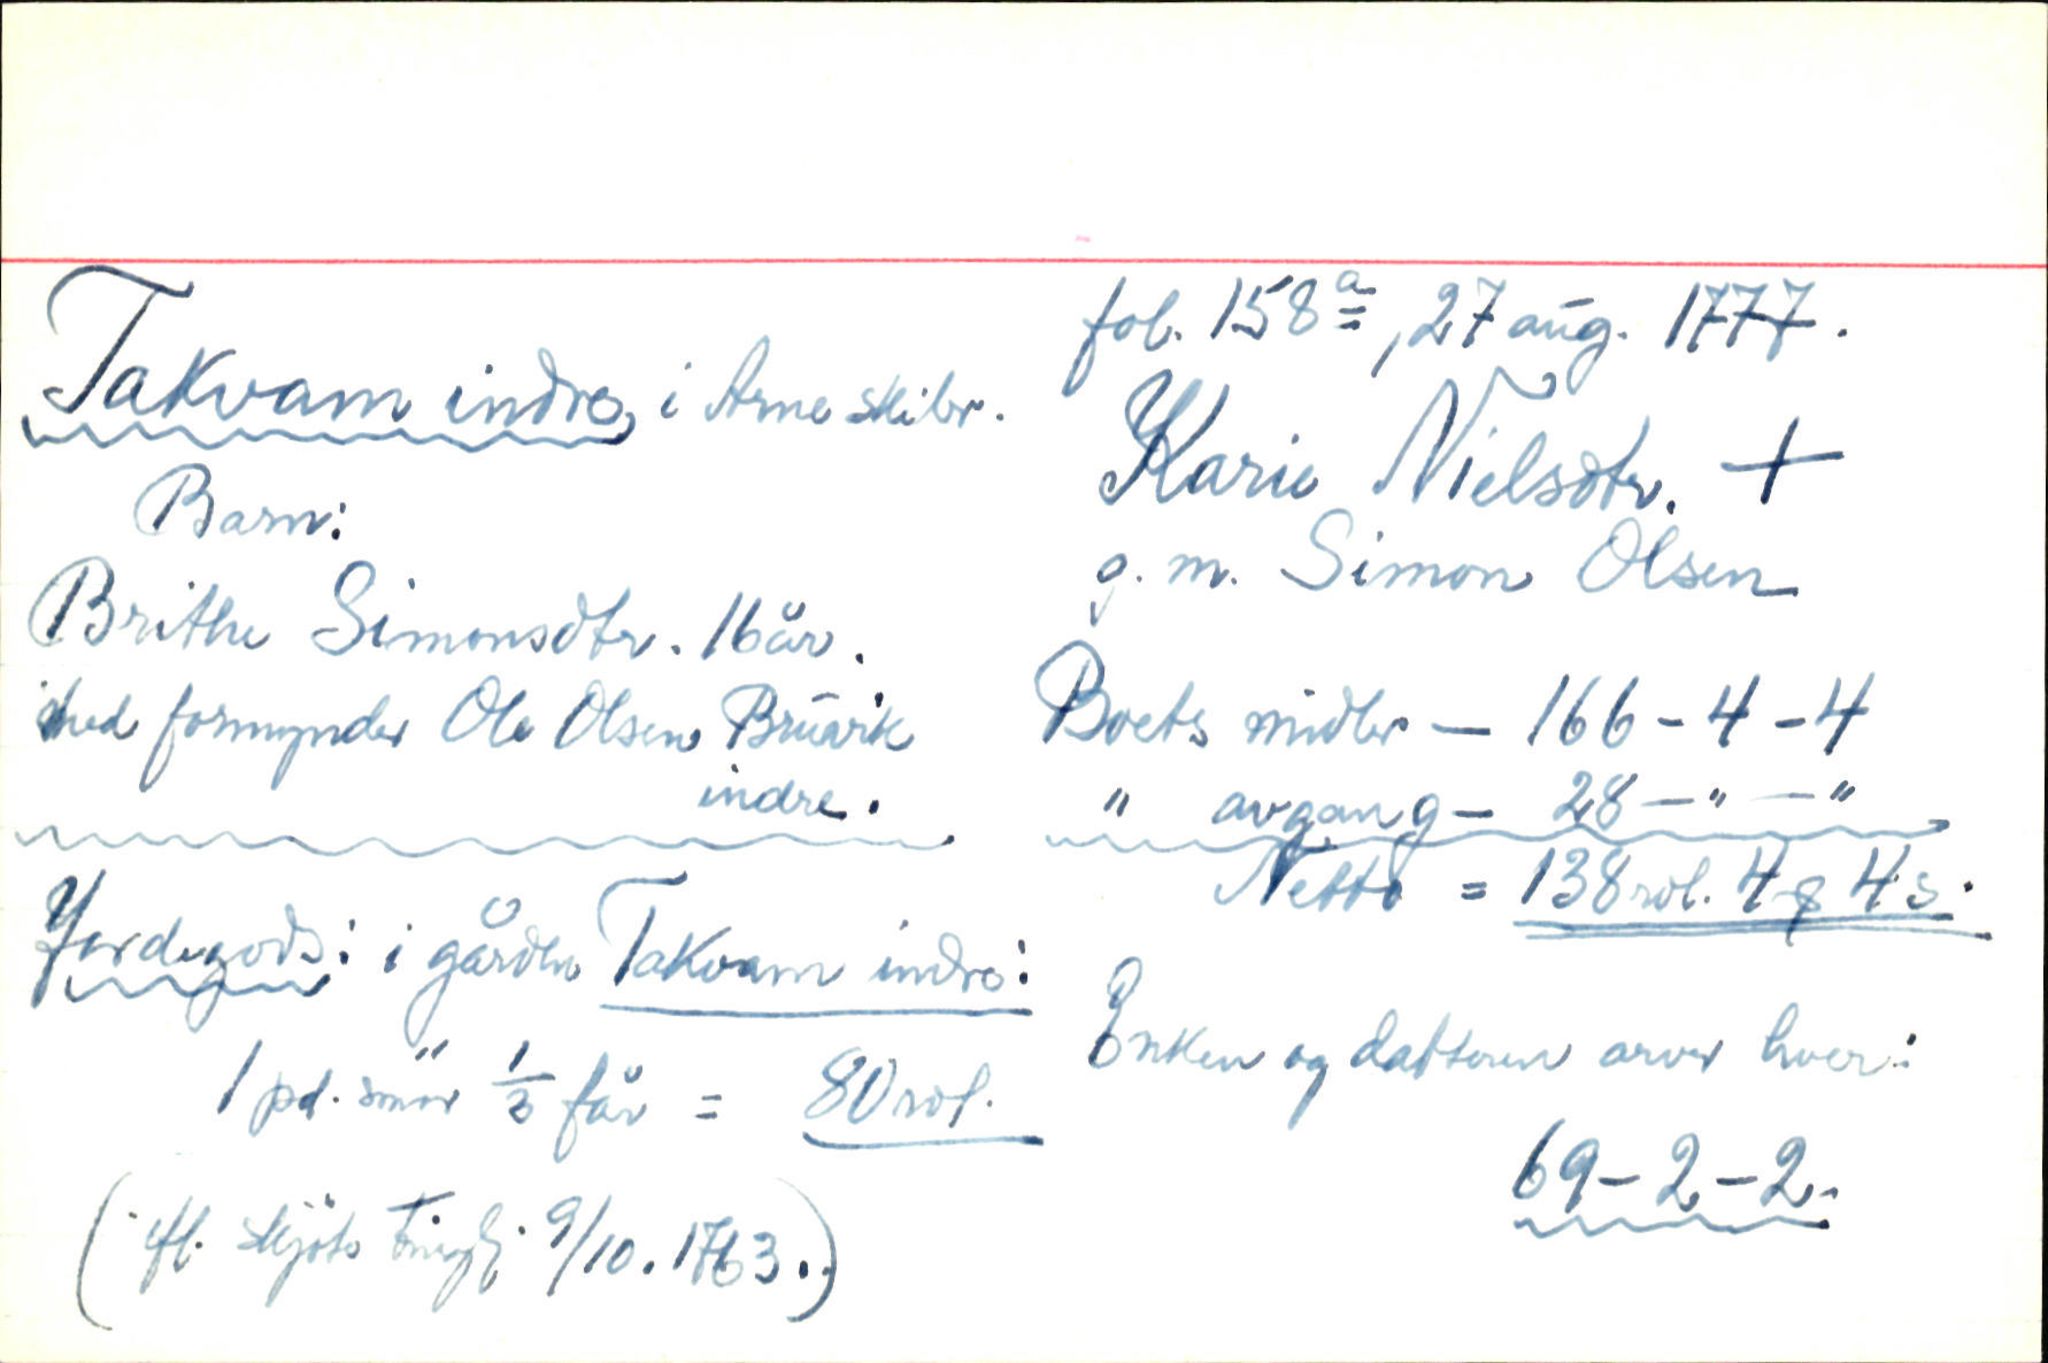 Takvam indre, i Arne skibr.
Barn:
Brithe Simonsdtr. 16 år.
med formynder Ole Olsen Bruvik
indre.
Jordegods: i gården Takvam indre:
1 pd. smör 1/3 får = 80 rdl.
(ifl. skjöte tinglj. 9/10. 1763.)
fol. 158 a, 27 aug. 1777.
Karie Nielsdtr. +
g. m. Simon Olsen
Boets midler — 166 - 4 - 4
" avgang — 28 — " — "
Netto = 138 rdl. 4 ꝑ 4 s.
Enken og datteren arver hver:
69 - 2 - 2.